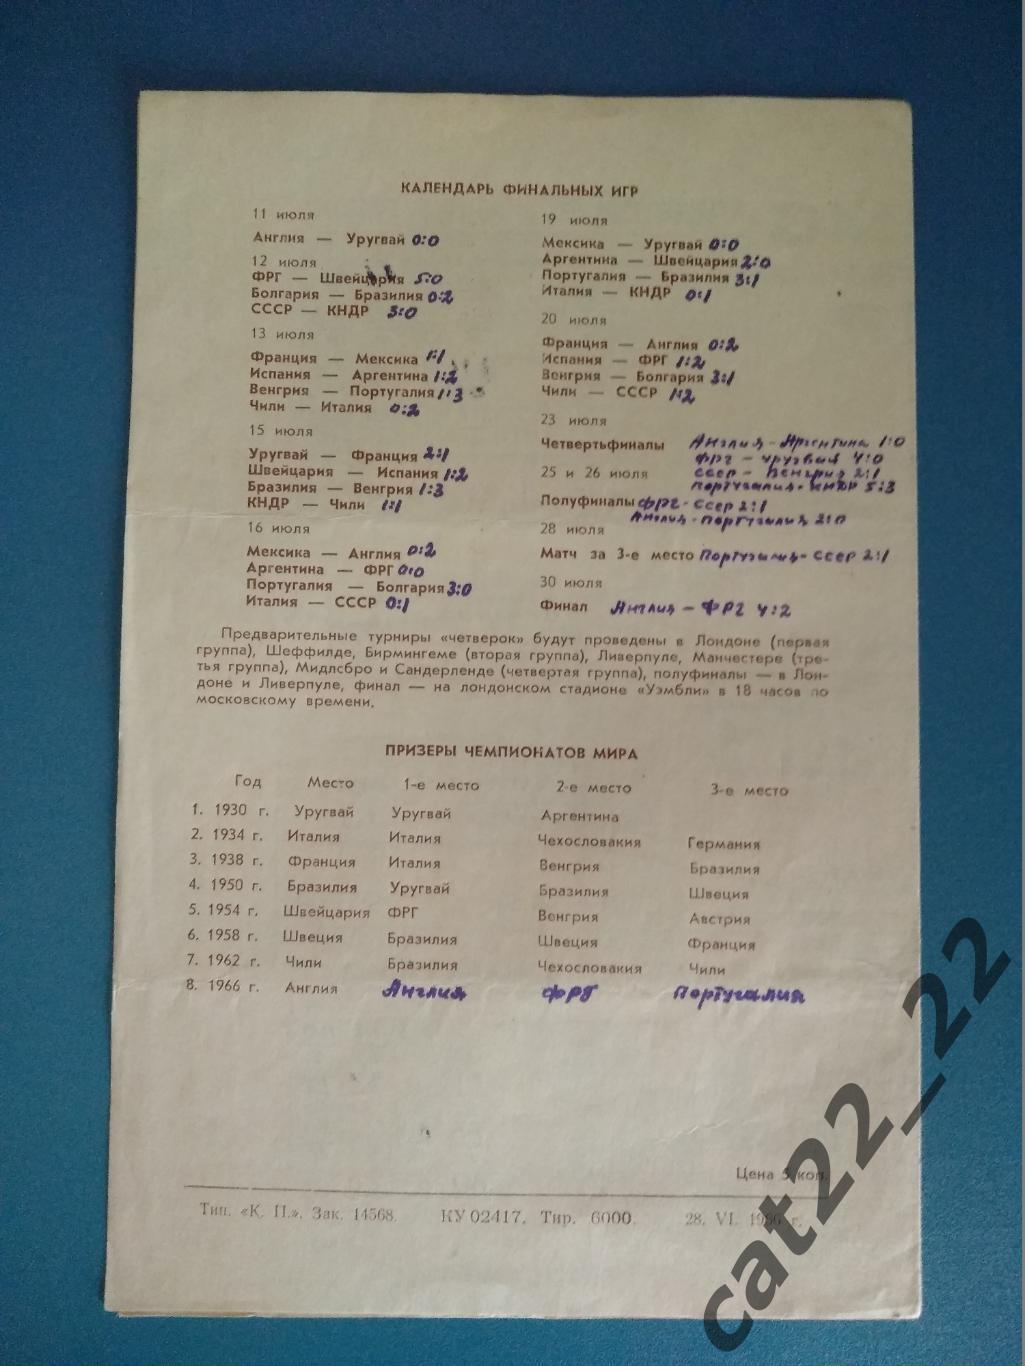 КАЛЕНДАРЬ ФИНАЛЬНЫХ ИГР
11 июля
Англия — Уругвай 0:0
12 июля
ФРГ — Швейцария 5:0
Болгария — Бразилия 0:2
СССР — КНДР 3:0
13 июля
Франция — Мексика 1:1
Испания — Аргентина 1:2
Венгрия — Португалия 1:3
Чили — Италия 0:2
15 июля
Уругвай — Франция 2:1
Швейцария — Испания 1:2
Бразилия — Венгрия 1:3
КНДР — Чили 1:1
16 июля
Мексика — Англия 0:2
Аргентина — ФРГ 0:0
Португалия — Болгария 3:0
Италия — СССР 0:1
19 июля
Мексика — Уругвай 0:0
Аргентина — Швейцария 2:0
Португалия — Бразилия 3:1
Италия — КНДР 0:1
20 июля
Франция — Англия 0:2
Испания — ФРГ 1:2
Венгрия — Болгария 3:1
Чили — СССР 1:2
23 июля
Четвертьфиналы Англия - Аргентина 1:0
ФРГ - Уругвай 4:0
СССР - Венгрия 2:1
Португалия - КНДР 5:3
25 и 26 июля
Полуфиналы ФРГ - СССР 2:1
Англия - Португалия 2:0
28 июля
Матч за 3-е место Португалия - СССР 2:1
30 июля
Финал Англия - ФРГ 4:2
Предварительные турниры «четверок» будут проведены в Лондоне (первая
группа), Шеффилде, Бирмингеме (вторая группа), Ливерпуле, Манчестере (тре-
тья группа), Мидлсбро и Сандерленде (четвертая группа), полуфиналы — в Лон-
доне и Ливерпуле, финал — на лондонском стадионе «Уэмбли» в 18 часов по
московскому времени.
ПРИЗЕРЫ ЧЕМПИОНАТОВ МИРА
Год Место 1-е место 2-е место 3-е место
1. 1930 г. Уругвай Уругвай Аргентина
2. 1934 г. Италия Италия Чехословакия Германия
3. 1938 г. Франция Италия Венгрия Бразилия
4. 1950 г. Бразилия Уругвай Бразилия Швеция
5. 1954 г. Швейцария ФРГ Венгрия Австрия
6. 1958 г. Швеция Бразилия Швеция Франция
7. 1962 г. Чили Бразилия Чехословакия Чили
8. 1966 г. Англия Англия ФРГ Португалия
Цена 3 коп.
Тип. «К. П.». Зак. 14568. КУ 02417. Тир. 6000. 28. VI. 1966 г.
cat22_22